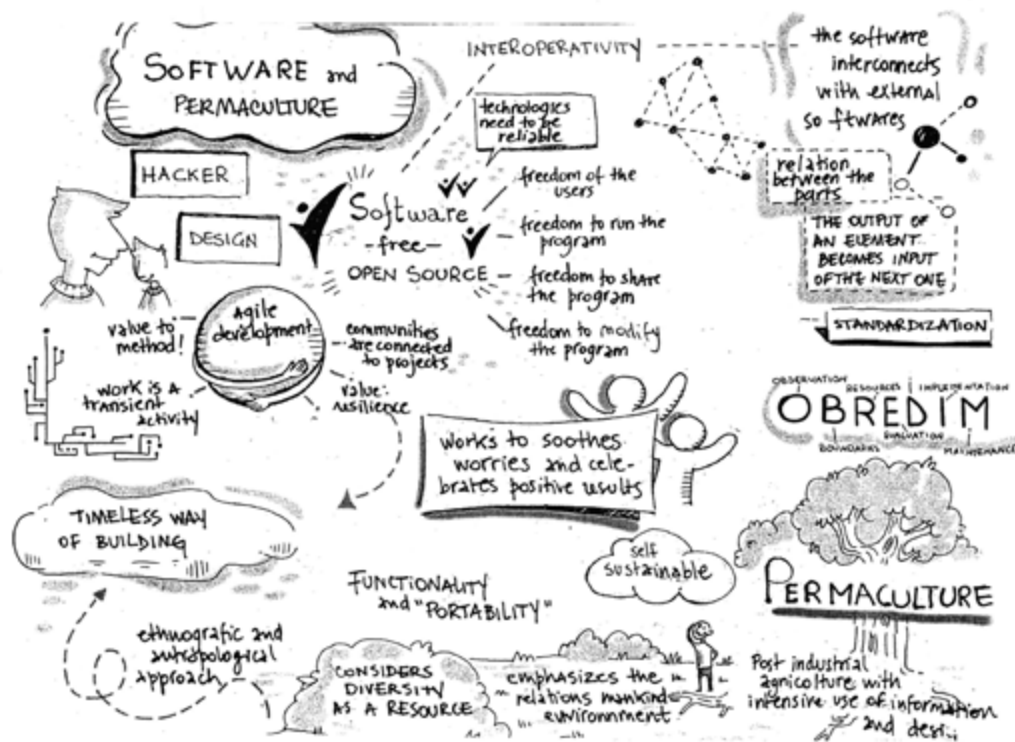 SOFTWARE and
PERMACULTURE
INTEROPERATIVITY
the software
interconnects
with external
so ftwares
technologies
need to be
reliable
HACKER
DESIGN
Software
-free-
OPEN SOURCE
freedom of the
users
freedom to run the
program
freedom to share
the program
freedom to modify
the program
relation
between the
parts
THE OUTPUT OF
AN ELEMENT
BECOMES INPUT
OF THE NEXT ONE
STANDARDIZATION
Agile
development
value to
method!
communities
are connected
to projects
work is a
transient
activity
value:
resilience
OBSERVATION
RESOURCES
IMPLEMENTATION
OBREDIM
BOUNDARIES
EVALUATION
MAINTENANCE
works to soothes
worries and cele-
brates positive results
TIMELESS WAY
OF BUILDING
self
sustainable
FUNCTIONALITY
and "PORTABILITY"
PERMACULTURE
ethnografic and
antropological
approach
CONSIDERS
DIVERSITY
AS A RESOURCE
emphasizes the
relations mankind-
environnment
Post industrial
agricolture with
intensive use of information
and desi